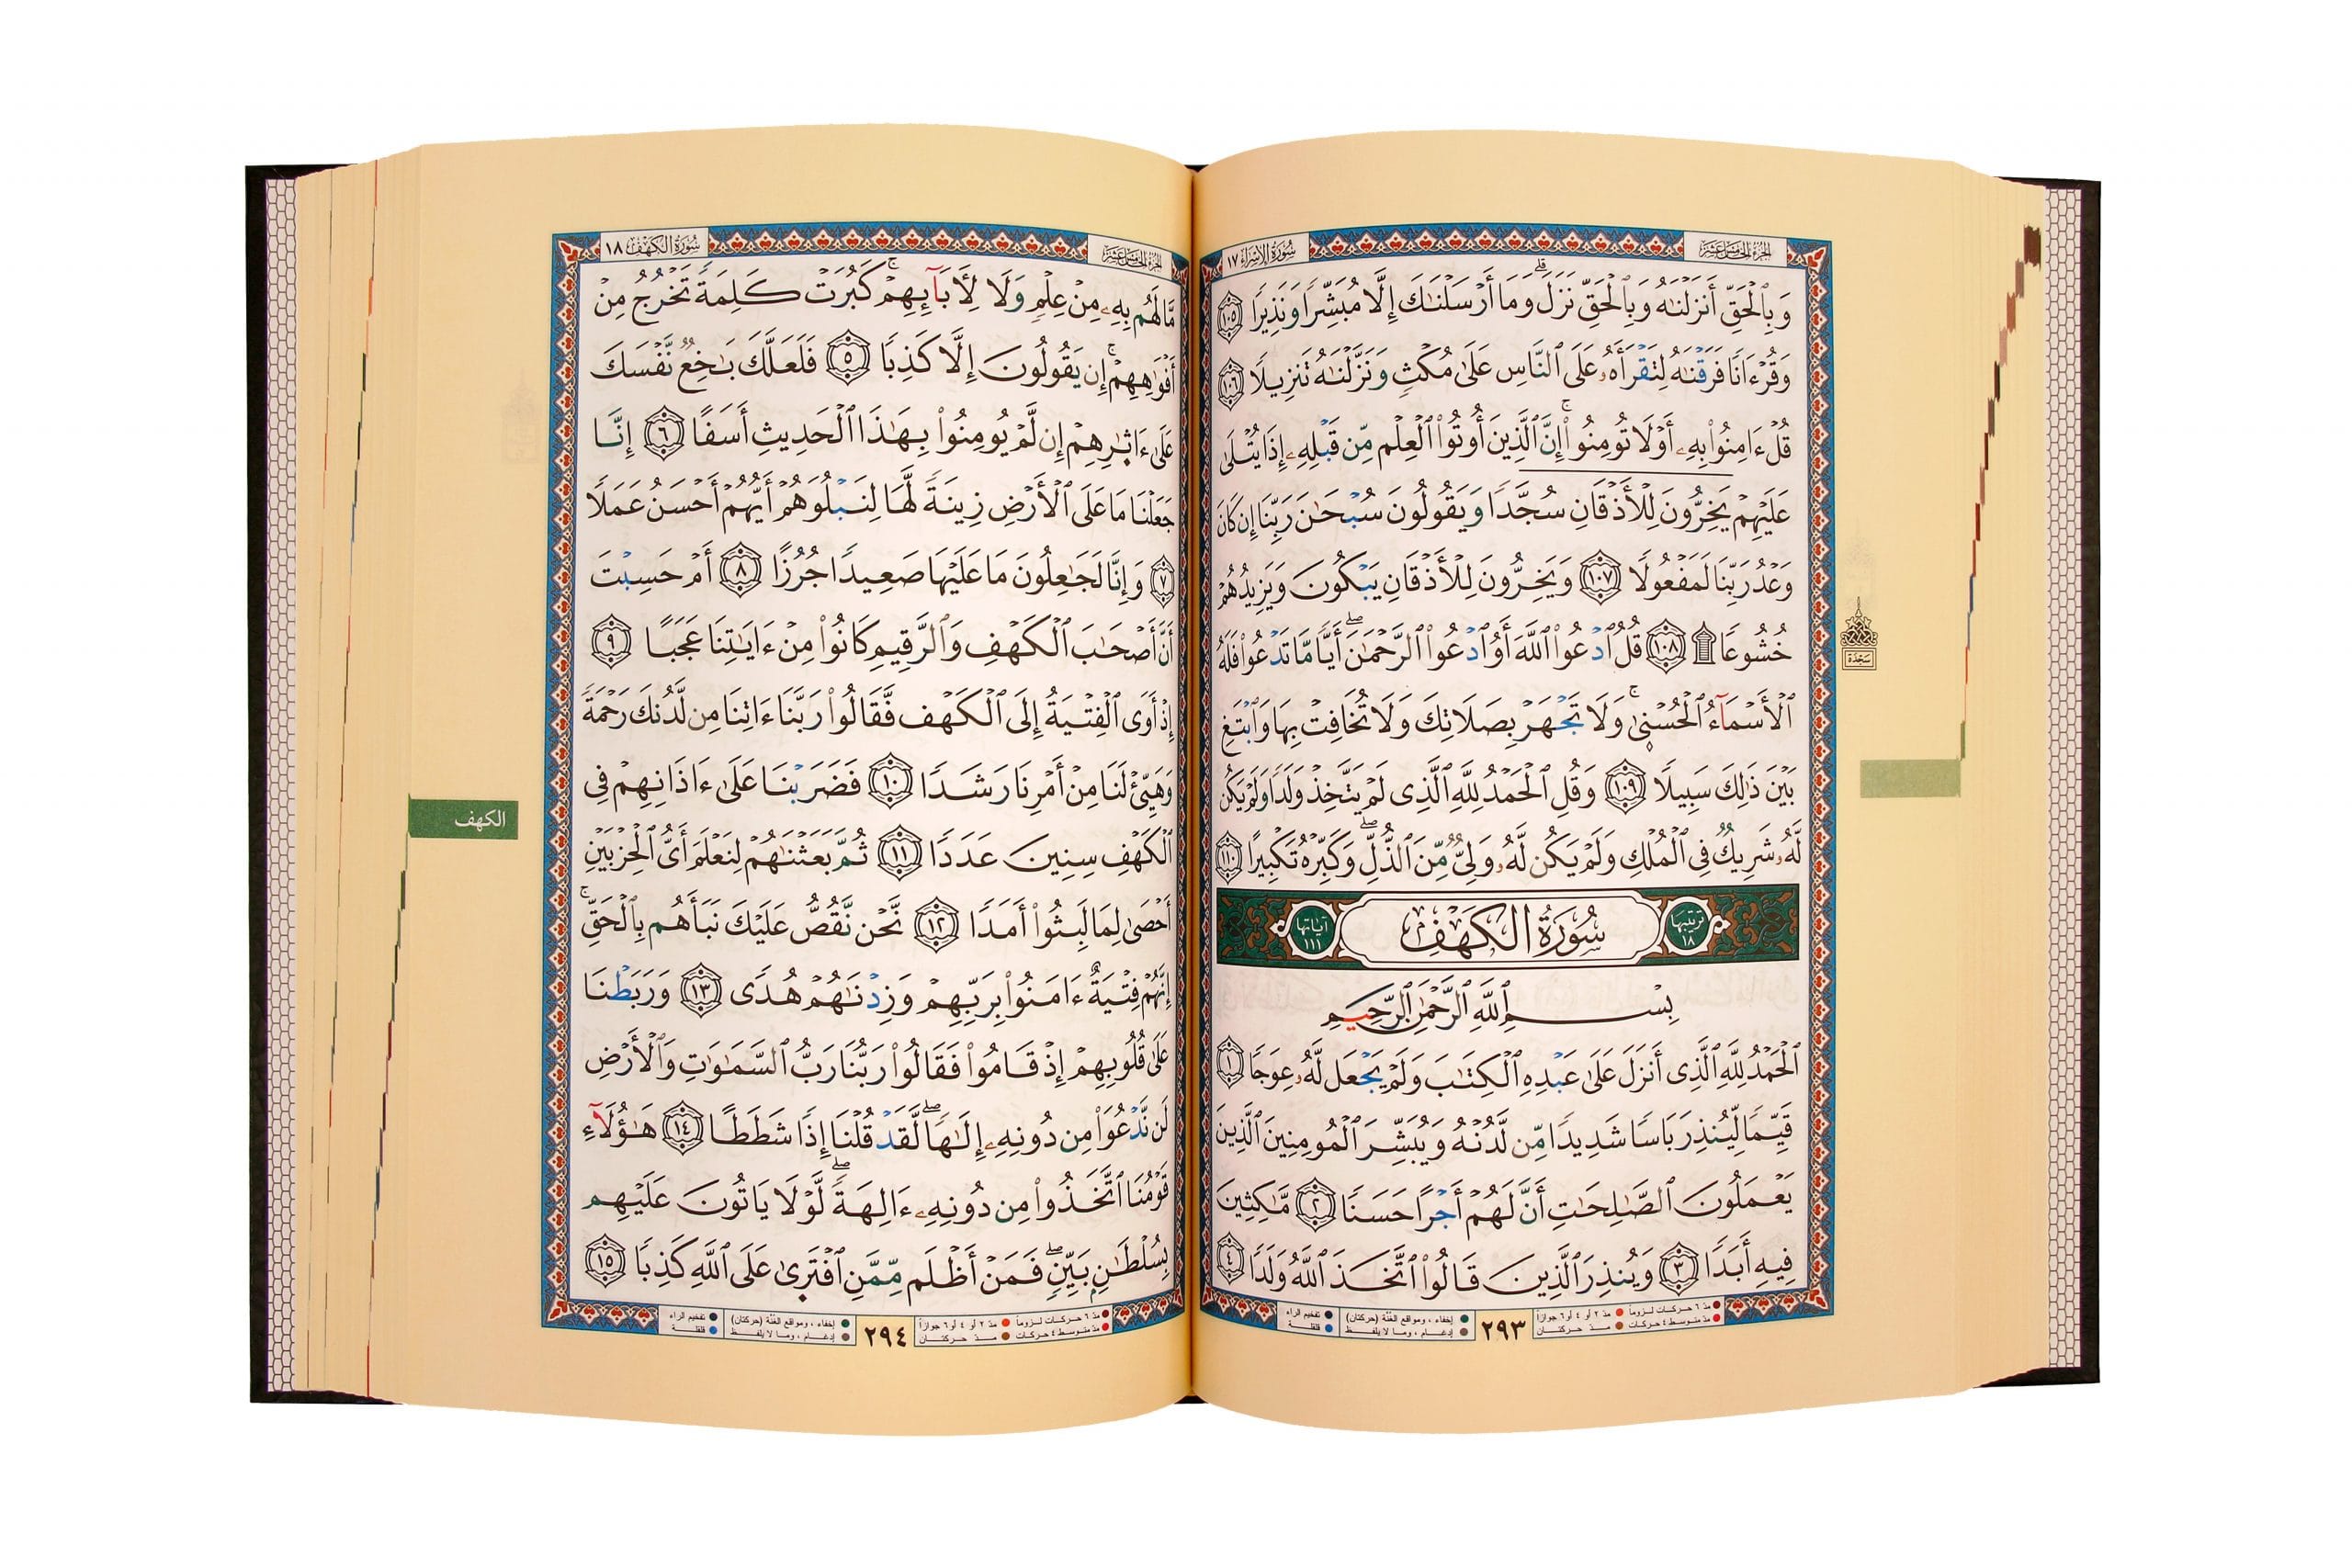 الجزء الخامس عشر
سُورَةُ الإِسْرَاءِ ١٧
وَبِالْحَقِّ أَنزَلْنَٰهُ وَبِالْحَقِّ نَزَلَ وَمَا أَرْسَلْنَٰكَ إِلَّا مُبَشِّرًا وَنَذِيرًا ١٠٥
وَقُرْءَانًا فَرَقْنَٰهُ لِتَقْرَأَهُۥ عَلَى النَّاسِ عَلَىٰ مُكْثٍ وَنَزَّلْنَٰهُ تَنزِيلًا ١٠٦
قُلْ ءَامِنُواْ بِهِۦ أَوْ لَا تُومِنُواْ إِنَّ الَّذِينَ أُوتُواْ الْعِلْم مِّن قَبْلِهِۦ إِذَا يُتْلَىٰ
عَلَيْهِمْ يَخِرُّونَ لِلْأَذْقَانِ سُجَّدًا وَيَقُولُونَ سُبْحَٰنَ رَبِّنَا إِن كَانَ
وَعْدُ رَبِّنَا لَمَفْعُولًا ١٠٧ وَيَخِرُّونَ لِلْأَذْقَانِ يَبْكُونَ وَيَزِيدُهُمْ
خُشُوعًا ١٠٨ قُلُ ادْعُواْ اللَّهَ أَوُ ادْعُواْ الرَّحْمَٰنَ أَيًّا مَّا تَدْعُواْ فَلَهُ
الْأَسْمَآءُ الْحُسْنَىٰ وَلَا تَجْهَرْ بِصَلَاتِكَ وَلَا تُخَافِتْ بِهَا وَابْتَغِ
بَيْنَ ذَٰلِكَ سَبِيلًا ١٠٩ وَقُلِ الْحَمْدُ لِلَّهِ الَّذِى لَمْ يَتَّخِذْ وَلَدًا وَلَمْ يَكُن
لَّهُۥ شَرِيكٌ فِى الْمُلْكِ وَلَمْ يَكُن لَّهُۥ وَلِىٌّ مِّنَ الذُّلِّ وَكَبِّرْهُ تَكْبِيرًا ١١٠
ترتيبها ١٨ سُورَةُ الْكَهْفِ آياتها ١١١
بِسْمِ اللَّهِ الرَّحْمَٰنِ الرَّحِيمِ
الْحَمْدُ لِلَّهِ الَّذِى أَنزَلَ عَلَىٰ عَبْدِهِ الْكِتَٰبَ وَلَمْ يَجْعَل لَّهُۥ عِوَجًا ١
قَيِّمًا لِّيُنذِرَ بَاسًا شَدِيدًا مِّن لَّدُنْهُ وَيُبَشِّرَ الْمُومِنِينَ الَّذِينَ
يَعْمَلُونَ الصَّٰلِحَٰتِ أَنَّ لَهُمْ أَجْرًا حَسَنًا ٢ مَّٰكِثِينَ
فِيهِ أَبَدًا ٣ وَيُنذِرَ الَّذِينَ قَالُواْ اتَّخَذَ اللَّهُ وَلَدًا ٤
مدّ ٦ حركات لزوماً مدّ ٢ أو ٤ أو ٦ جوازاً
مدّ متوسط ٤ حركات مدّ حركتان
٢٩٣
إخفاء ، ومواقع الغنّة (حركتان) تفخيم الراء
إدغام ، وما لا يلفظ قلقلة
سَجْدَة
الجزء الخامس عشر
سُورَةُ الكَهْف ١٨
مَّا لَهُم بِهِۦ مِنْ عِلْمٍ وَلَا لِأَبَآئِهِمْ كَبُرَتْ كَلِمَةً تَخْرُجُ مِنْ
أَفْوَٰهِهِمْ إِن يَقُولُونَ إِلَّا كَذِبًا ٥ فَلَعَلَّكَ بَٰخِعٌ نَّفْسَكَ
عَلَىٰ ءَاثَٰرِهِمْ إِن لَّمْ يُومِنُواْ بِهَٰذَا الْحَدِيثِ أَسَفًا ٦ إِنَّا
جَعَلْنَا مَا عَلَى الْأَرْضِ زِينَةً لَّهَا لِنَبْلُوَهُمْ أَيُّهُمْ أَحْسَنُ عَمَلًا
٧ وَإِنَّا لَجَٰعِلُونَ مَا عَلَيْهَا صَعِيدًا جُرُزًا ٨ أَمْ حَسِبْتَ
أَنَّ أَصْحَٰبَ الْكَهْفِ وَالرَّقِيمِ كَانُواْ مِنْ ءَايَٰتِنَا عَجَبًا ٩
إِذْ أَوَى الْفِتْيَةُ إِلَى الْكَهْفِ فَقَالُواْ رَبَّنَا ءَاتِنَا مِن لَّدُنكَ رَحْمَةً
وَهَيِّئْ لَنَا مِنْ أَمْرِنَا رَشَدًا ١٠ فَضَرَبْنَا عَلَىٰ ءَاذَانِهِمْ فِى
الْكَهْفِ سِنِينَ عَدَدًا ١١ ثُمَّ بَعَثْنَٰهُمْ لِنَعْلَمَ أَىُّ الْحِزْبَيْنِ
أَحْصَىٰ لِمَا لَبِثُواْ أَمَدًا ١٢ نَّحْن نَّقُصُّ عَلَيْكَ نَبَأَهُم بِالْحَقِّ
إِنَّهُمْ فِتْيَةٌ ءَامَنُواْ بِرَبِّهِمْ وَزِدْنَٰهُمْ هُدًى ١٣ وَرَبَطْنَا
عَلَىٰ قُلُوبِهِمْ إِذْ قَامُواْ فَقَالُواْ رَبُّنَا رَبُّ السَّمَٰوَٰتِ وَالْأَرْضِ
لَن نَّدْعُوَاْ مِن دُونِهِۦ إِلَٰهًا لَّقَدْ قُلْنَا إِذًا شَطَطًا ١٤ هَٰؤُلَآءِ
قَوْمُنَا اتَّخَذُواْ مِن دُونِهِۦ ءَالِهَةً لَّوْلَا يَاتُونَ عَلَيْهِم
بِسُلْطَٰنٍ بَيِّنٍ فَمَنْ أَظْلَم مِّمَّنِ افْتَرَىٰ عَلَى اللَّهِ كَذِبًا ١٥
مدّ ٦ حركات لزوماً مدّ ٢ أو ٤ أو ٦ جوازاً
مدّ متوسط ٤ حركات مدّ حركتان
٢٩٤
إخفاء ، ومواقع الغنّة (حركتان) تفخيم الراء
إدغام ، وما لا يلفظ قلقلة
الكهف